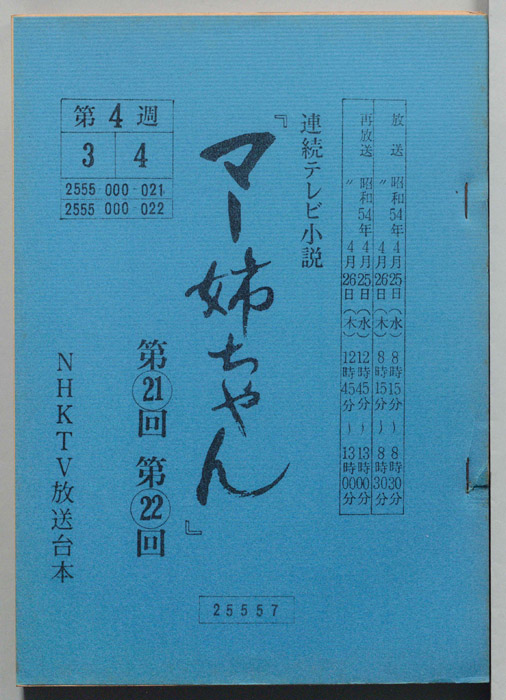 放送 昭和54年4月25日(水) 8時15分〜8時30分
〃 4月26日(木) 8時15分〜8時30分
再放送 昭和54年4月25日(水) 12時45分〜13時00分
〃 4月26日(木) 12時45分〜13時00分
連続テレビ小説
『マー姉ちゃん』
第㉑回 第㉒回
第4週
3 4
2555 000-021
2555 000-022
NHKTV放送台本
25557